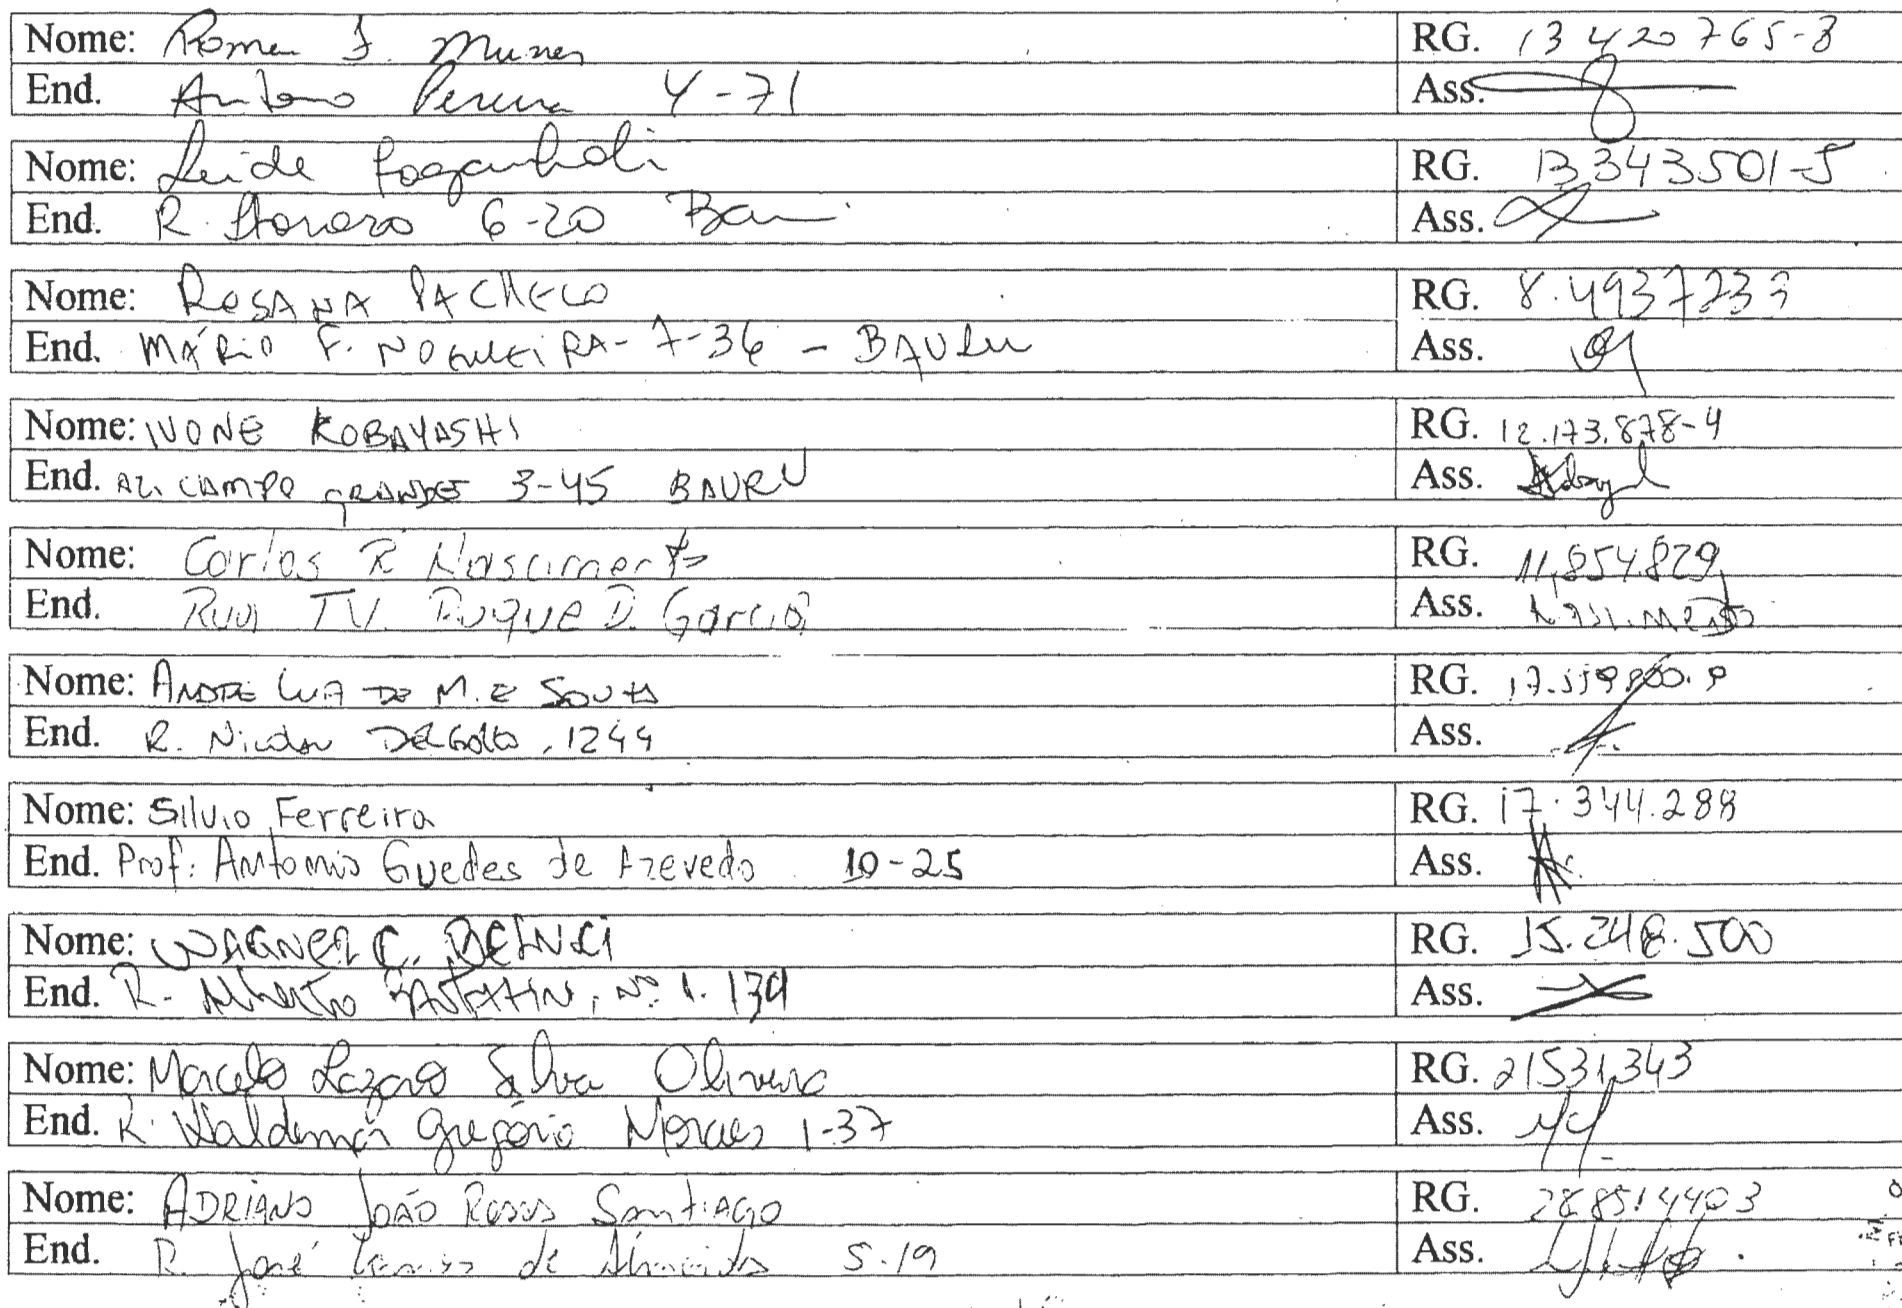 Nome: Rome J. Munes RG. 13 420 765-8
End. Antono Pereira 4-71 Ass.
Nome: Leide RG. 13343501-5
End. R. 6-20 Ass.
Nome: ROSANA PACHECO RG. 8.4937233
End. MÁRIO F. NOGUEIRA-7-36 - BAURU Ass.
Nome: IVONE KOBAYASHI RG. 12.173.878-4
End. AL. CAMPO GRANDE 3-45 BAURU Ass.
Nome: Carlos R Nascimento RG. 11,854.829
End. Rua TV. Duque D. Garcia Ass. Nascimento
Nome: ANDRE LUA DE M. E SOUZA RG.
End. R. Nicolau DELGallo, 1244 Ass.
Nome: Silvio Ferreira RG. 17.344.288
End. Prof: Antonio Guedes de Azevedo 10-25 Ass.
Nome: WAGNER C. RG. 15.248.500
End. R. Alberto Nº 1.134 Ass.
Nome: Marcelo Lazaro Silva Oliveira RG. 21531,343
End. R. Waldemar Gregório Moraes 1-37 Ass.
Nome: ADRIANO JOÃO ROSAS SANTIAGO RG. 288514403
End. R. José de Almeida 5-19 Ass.